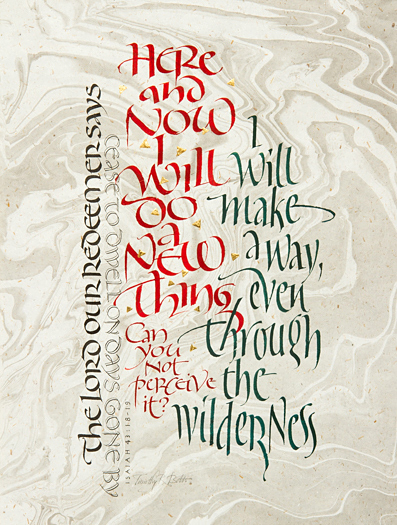 The LORD OUR REDEEMER SAYS
CEASE TO DWELL ON DAYS GONE BY
ISAIAH 43:18-19
HeRe
and
NOW
I
Will
DO
a
NEW
Thing
Can
you
Not
perceive
it?
I
will
make
a way,
even
through
the
wilderNess